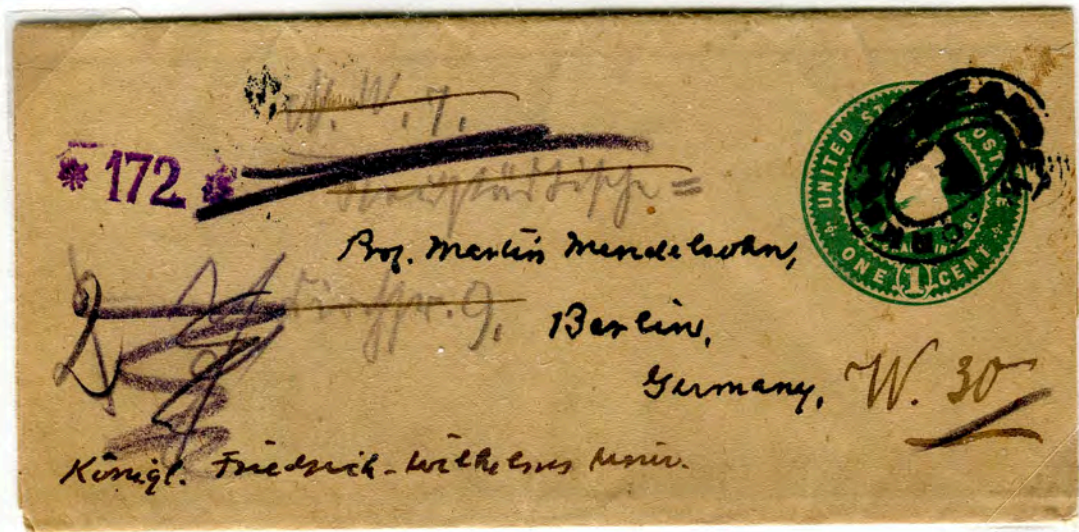 N. W. 7.
* 172 *
Neustädtische =
Prof. Martin Mendelsohn,
Kirchstr. 9.
Berlin,
Germany,
W. 30
Königl. Friedrich-Wilhelms Univ.
UNITED STATES POSTAGE
ONE 1 CENT